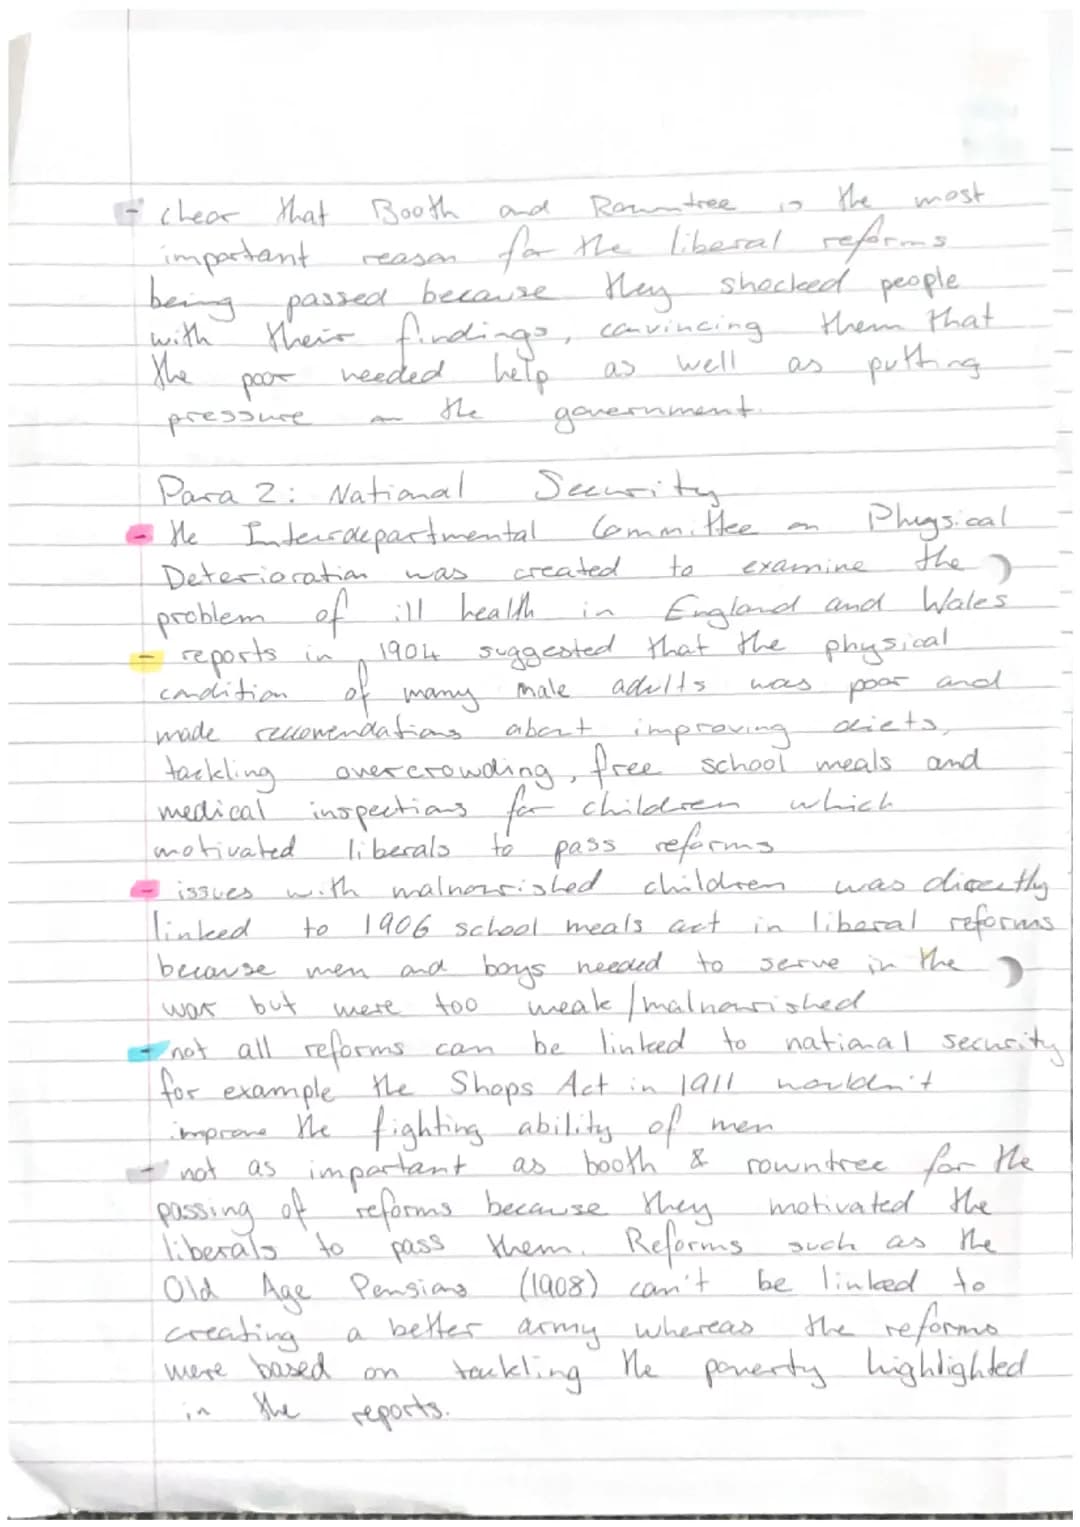 - clear that Booth and Rowntree is the most
important reason for the liberal reforms
being passed because they shocked people
with their findings, convincing them that
the poor needed help as well as putting
pressure on the government.
Para 2: National Security
- the Interdepartmental Committee on Physical
Deterioration was created to examine the
problem of ill health in England and Wales
- reports in 1904 suggested that the physical
condition of many male adults was poor and
made reccomendations about improving diets,
tackling overcrowding, free school meals and
medical inspections for children which
motivated liberals to pass reforms
- issues with malnourished children was directly
linked to 1906 school meals act in liberal reforms
because men and boys needed to serve in the
war but were too weak/malnourished
- not all reforms can be linked to national security
for example the Shops Act in 1911 wouldn't
improve the fighting ability of men
- not as important as booth & rowntree for the
passing of reforms because they motivated the
liberals to pass them. Reforms such as the
Old Age Pensions (1908) can't be linked to
creating a better army whereas the reforms
were based on tackling the poverty highlighted
in the reports.